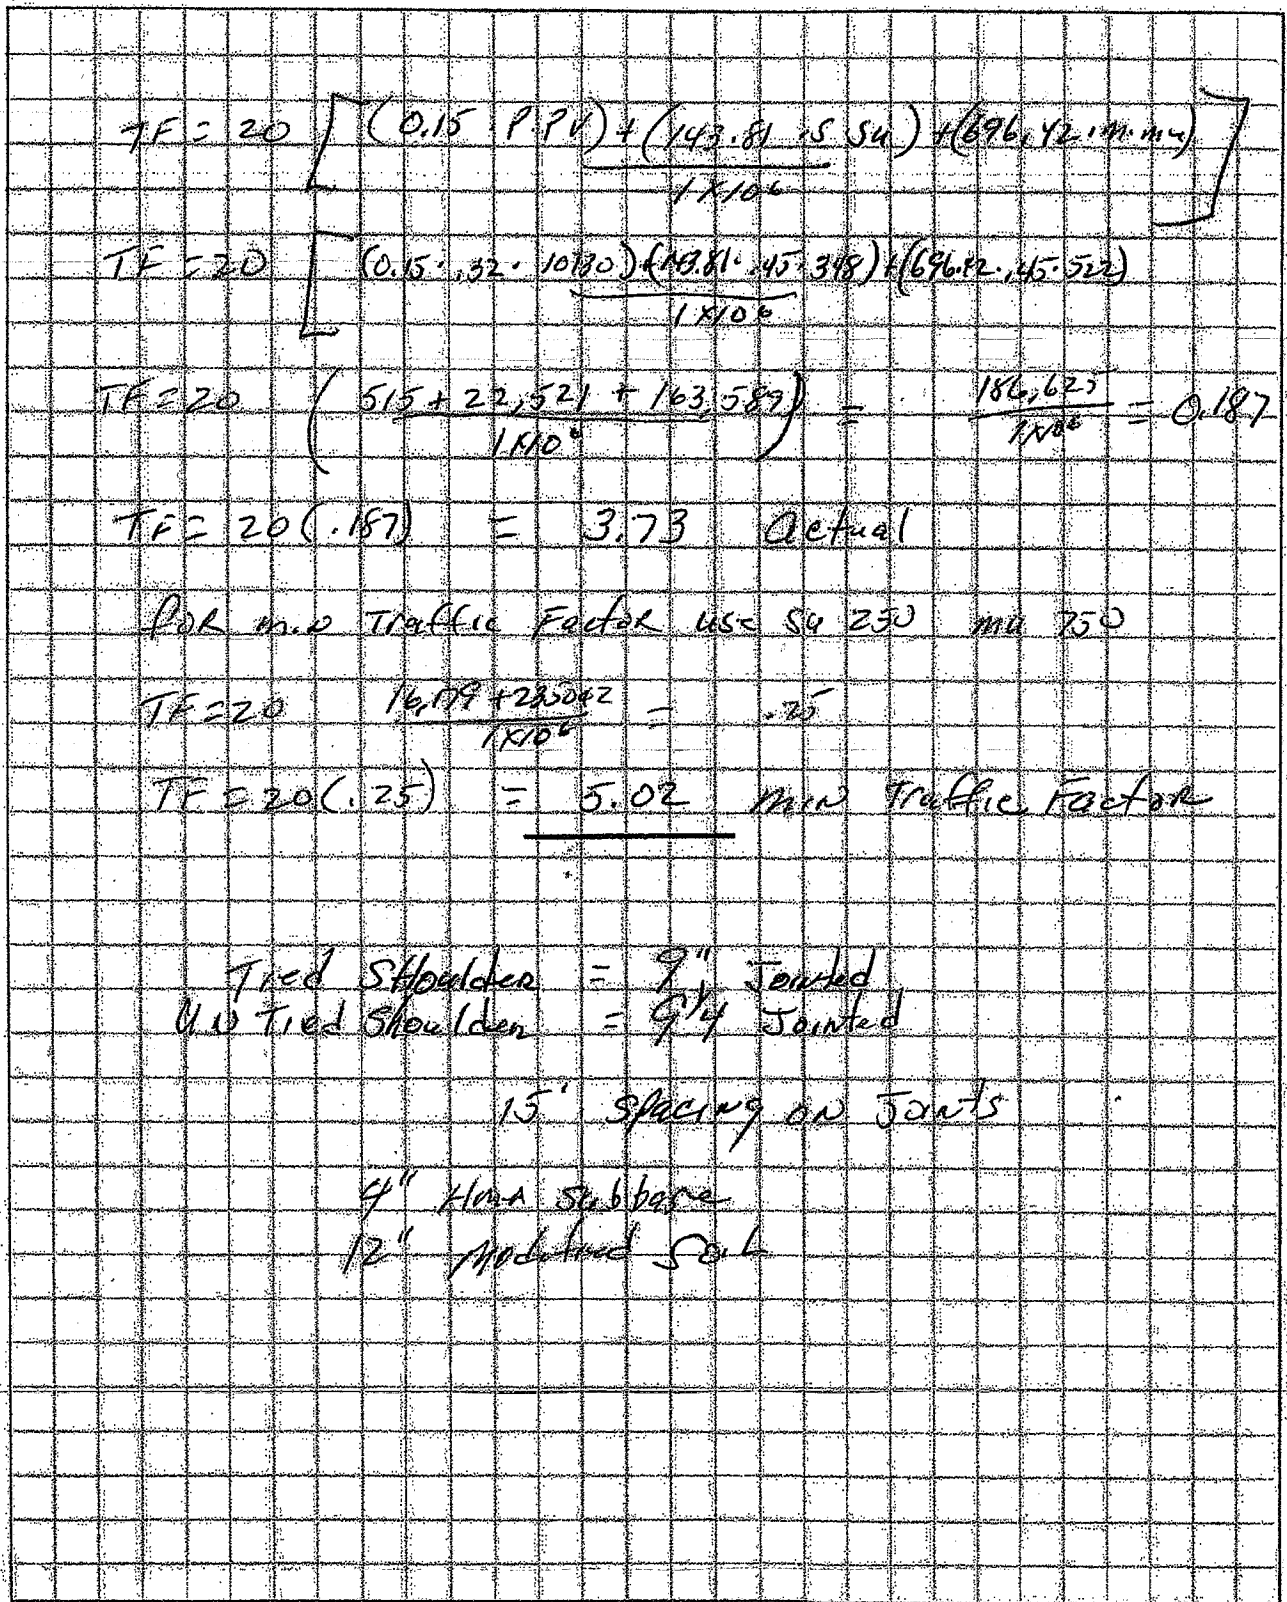 TF = 20 [ (0.15 · P · PV) + (143.81 · S SU) + (696.42 · m · mu) ]
1 X 10⁶
TF = 20 [ (0.15 · .32 · 10730) + (143.81 · .45 · 348) + (696.42 · .45 · 522)
1 X 10⁶
TF = 20 ( 515 + 22,521 + 163,589 ) = 186,625 = 0.187
1 X 10⁶ 1 X 10⁶
TF = 20 (.187) = 3.73 Actual
FOR min Traffic Factor use SU 250 mu 750
TF = 20 16,179 + 235042 = .25
1 X 10⁶
TF = 20 (.25) = 5.02 MIN Traffic Factor
Tied SHoulder = 9" Jointed
UN Tied Shoulder = 9 1/4 Jointed
15' Spacing ON Joints
4" HMA Subbase
12" Modified Soil